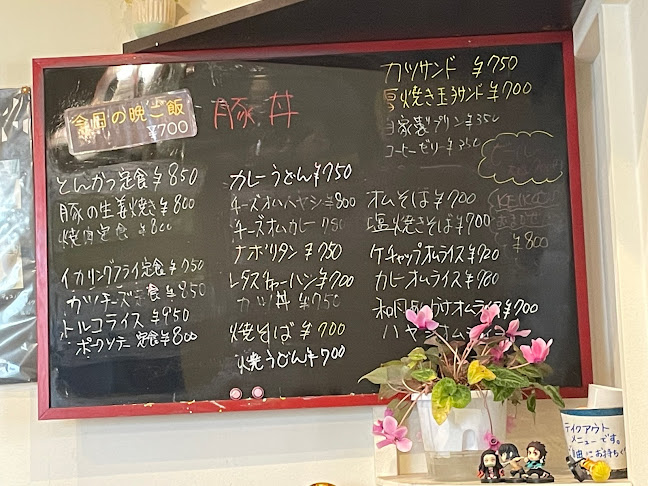 今日の晩ご飯
¥700
豚丼
とんかつ定食 ¥850
豚の生姜焼き ¥800
焼肉定食 ¥800
イカリングフライ定食 ¥750
カツチーズ定食 ¥850
トルコライス ¥950
ポークソテー定食 ¥800
カレーうどん ¥750
チーズオムハヤシ ¥800
チーズオムカレー 750
ナポリタン ¥750
レタスチャーハン ¥700
カツ丼 ¥750
焼そば ¥700
焼うどん ¥700
カツサンド ¥750
厚焼き玉子サンド ¥700
自家製プリン ¥350
コーヒーゼリー ¥350
オムそば ¥700
塩焼きそば ¥700
ケチャップオムライス ¥720
カレーオムライス ¥780
オムライス ¥700
ハヤシオム
¥800
テイクアウト
メニューです。
にお持ち